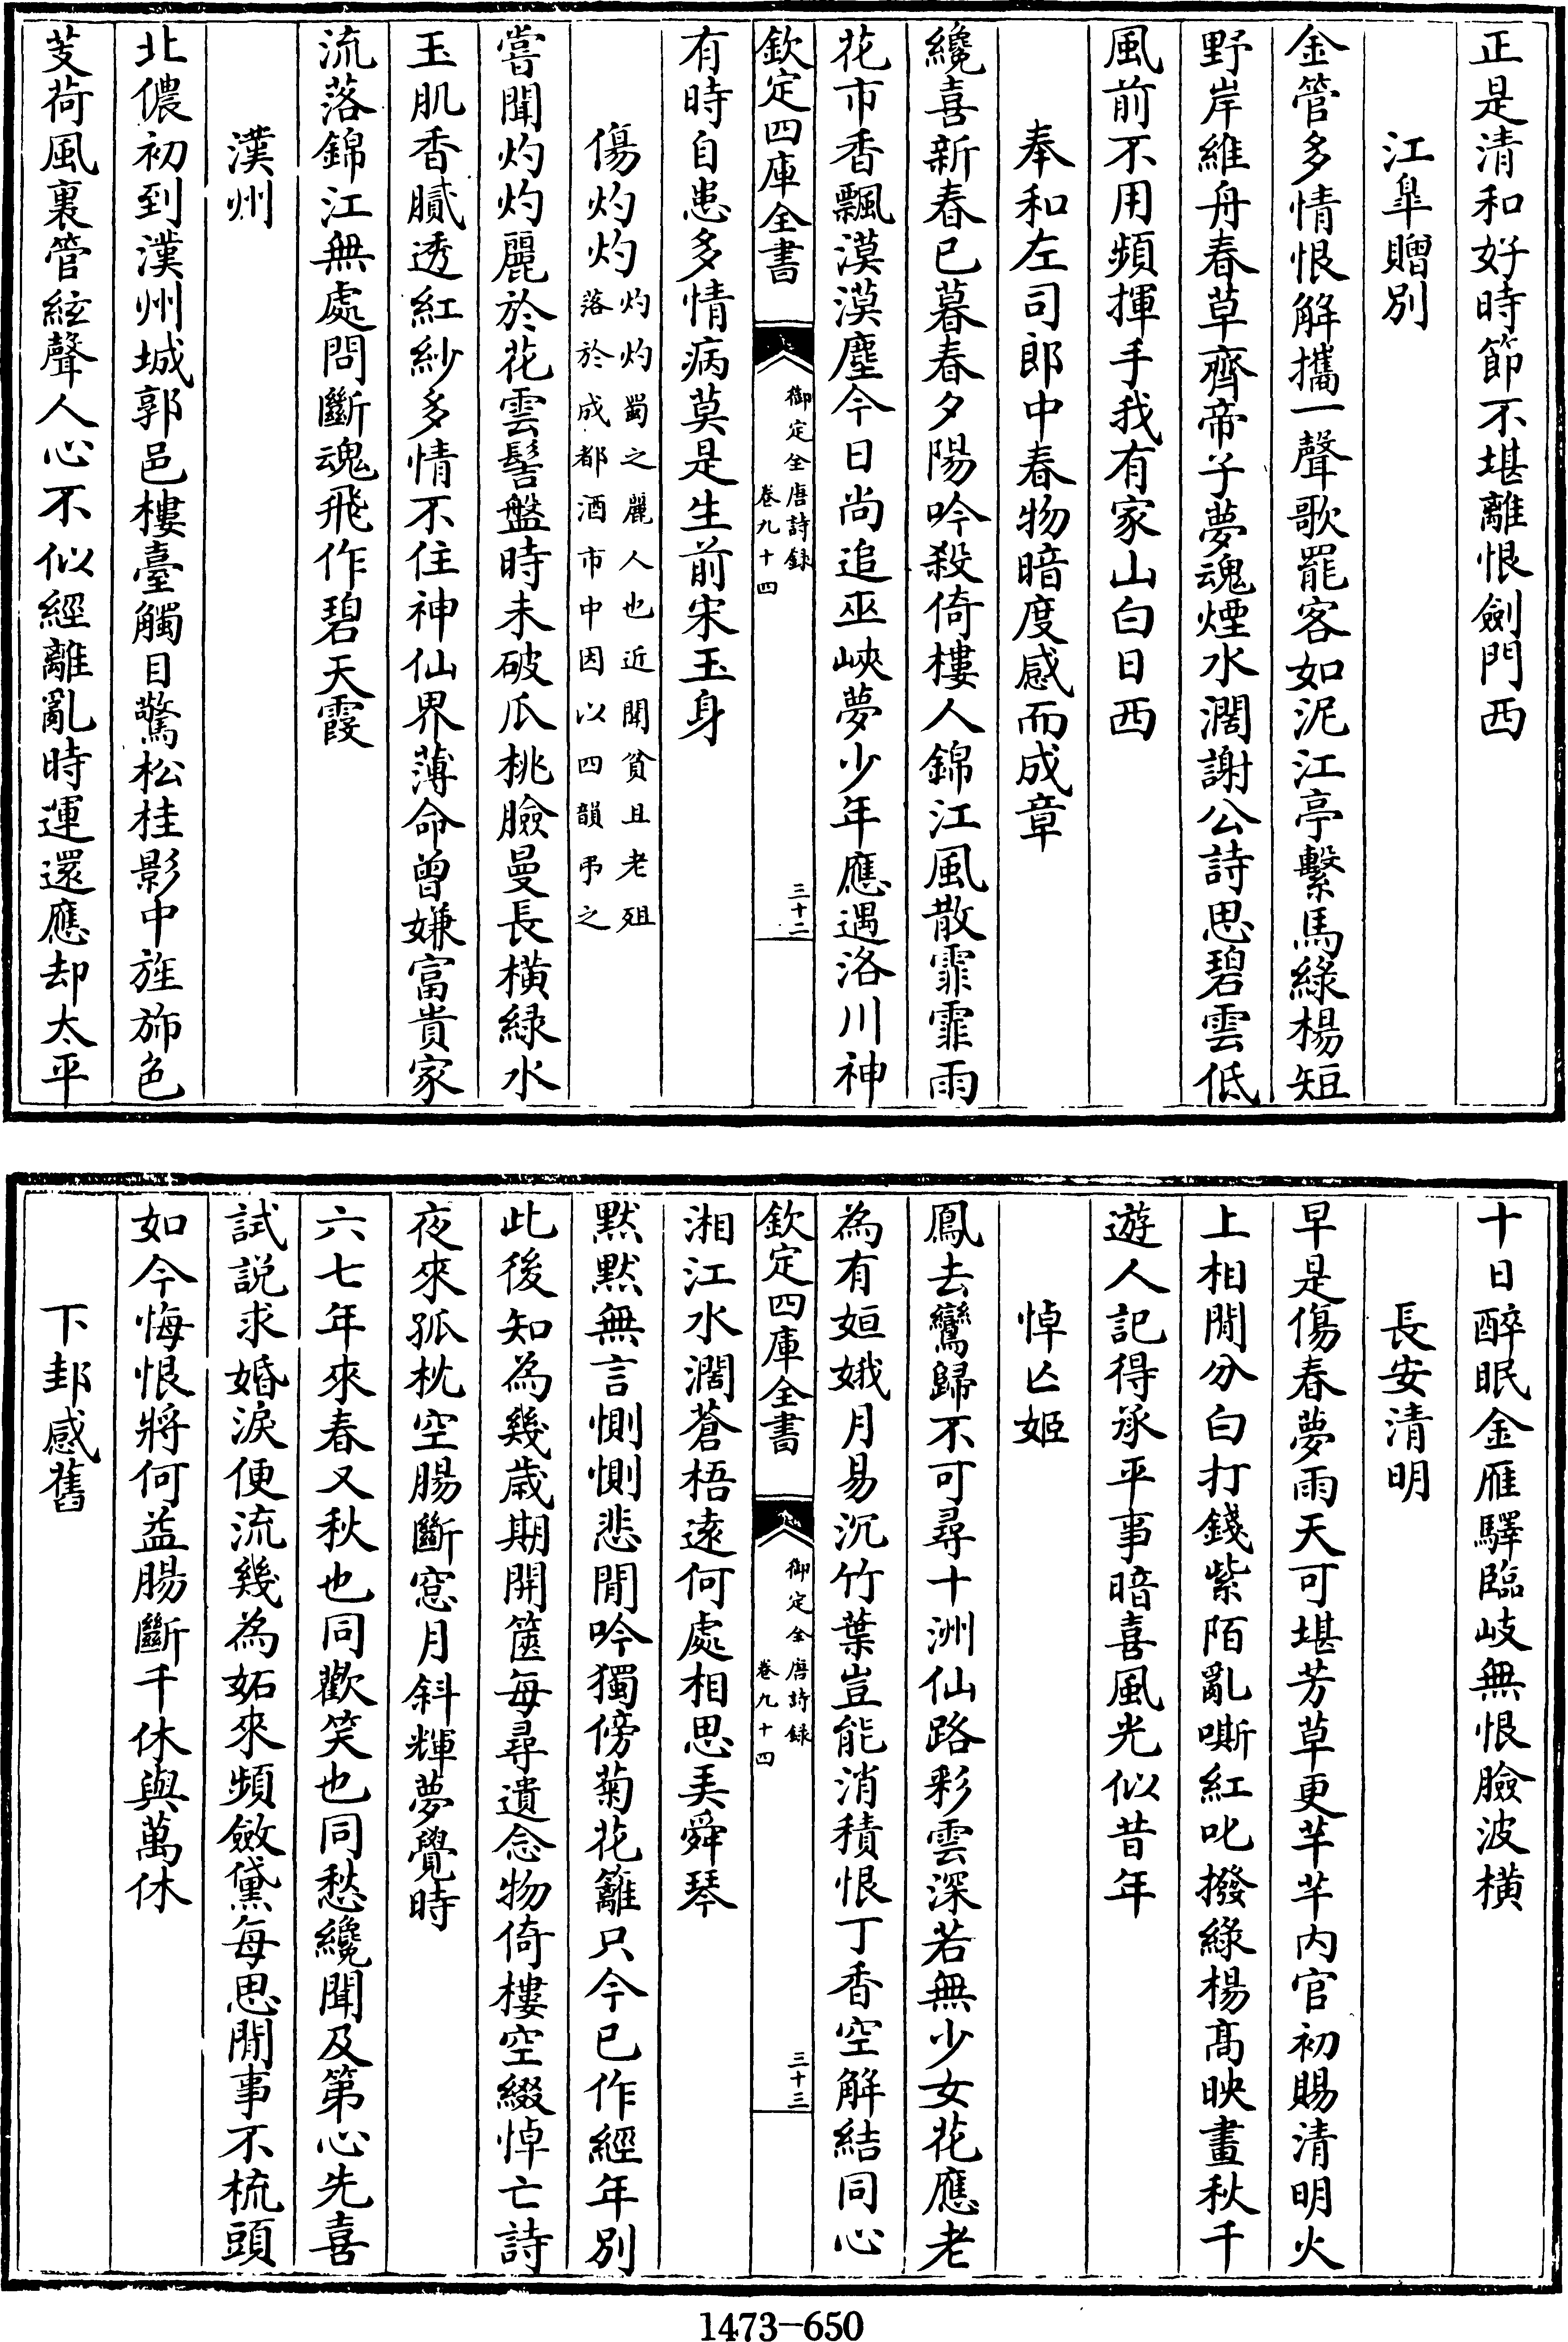 正是清和好時節不堪離恨劍門西
江臯贈別
金管多情恨解攜一聲歌罷客如泥江亭繫馬綠楊短
野岸維舟春草齊帝子夢魂煙水濶謝公詩思碧雲低
風前不用頻揮手我有家山白日西
奉和左司郎中春物暗度感而成章
纔喜新春已暮春夕陽吟殺倚樓人錦江風散霏霏雨
花市香飄漠漠塵今日尚追巫峽夢少年應遇洛川神
欽定四庫全書
御定全唐詩録
卷九十四
三十二
有時自患多情病莫是生前宋玉身
傷灼灼
灼灼蜀之麗人也近聞貧且老殂
落於成都酒市中因以四韻弔之
嘗聞灼灼麗於花雲髻盤時未破瓜桃臉曼長橫緑水
玉肌香膩透紅紗多情不住神仙界薄命曾嫌富貴家
流落錦江無處問斷魂飛作碧天霞
漢州
北儂初到漢州城郭邑樓臺觸目驚松桂影中旌斾色
芰荷風裏管絃聲人心不似經離亂時運還應却太平
十日醉眠金雁驛臨岐無恨臉波橫
長安清明
早是傷春夢雨天可堪芳草更芊芊内官初賜清明火
上相閒分白打錢紫陌亂嘶紅叱撥綠楊髙映畫秋千
遊人記得承平事暗喜風光似昔年
悼亾姬
鳳去鸞歸不可尋十洲仙路彩雲深若無少女花應老
為有姮娥月易沉竹葉豈能消積恨丁香空解結同心
欽定四庫全書
御定全唐詩録
卷九十四
三十三
湘江水濶蒼梧遠何處相思美舜琴
黙黙無言惻惻悲閒吟獨傍菊花籬只今已作經年別
此後知為幾歳期開篋每尋遺念物倚樓空綴悼亡詩
夜來孤枕空腸斷窓月斜輝夢覺時
六七年來春又秋也同歡笑也同愁纔聞及第心先喜
試説求婚淚便流幾為妬來頻斂黛每思閒事不梳頭
如今悔恨將何益腸斷千休與萬休
下邽感舊
1473-650